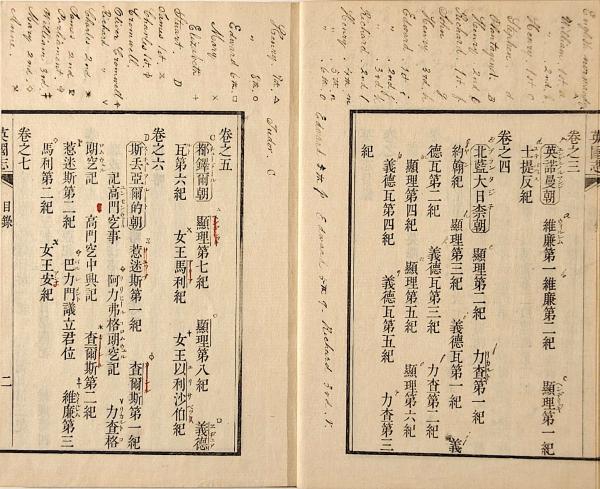 English normandy
William 1st a
" 2nd b
Henry. C
Stephen d
Plantagenet B
Henry 2nd e
Richard 1st f
John g
Henry 3rd. h
Edward 1st i
" 2nd. j
" 3rd
Richard. 2nd
Henry. 4th m
" 5th n
" 6th o
Edward 4th p Edward 5th q. Richard 3rd r.
卷之三
英諾曼朝 維廉第一維廉第二紀 顯理第一紀
士提反紀
卷之四
北藍大日柰朝 顯理第二紀 力查第一紀
約翰紀 顯理第三紀 義德瓦第一紀 義
德瓦第二紀 義德瓦第三紀 力查第二紀
顯理第四紀 顯理第五紀 顯理第六紀
義德瓦第四紀 義德瓦第五紀 力查第三
紀
Tudor. C
Henry 7th. △
" 8th. O
Edward 6th □
Mary ×
Elizabeth
Stuart. D
James 1st.
Charles 1st
Cromwell.
Oliver Cromwell
Richard "
Charles 2nd
James 2nd
Parliament
William 3rd.
Mary 2nd
Anne.
卷之五
顯理第七紀 顯理第八紀 義德
瓦第六紀 女王馬利紀 女王以利沙伯紀
卷之六
斯丟亞爾的朝 惹迷斯第一紀 查爾斯第一紀
記高門事 阿力弗格記 力查格
記 高門中興記 查爾斯第二紀
惹迷斯第二紀 巴力門議立君位 維廉第三
馬利第二紀 女王安紀
卷之七
英國志
目錄
二